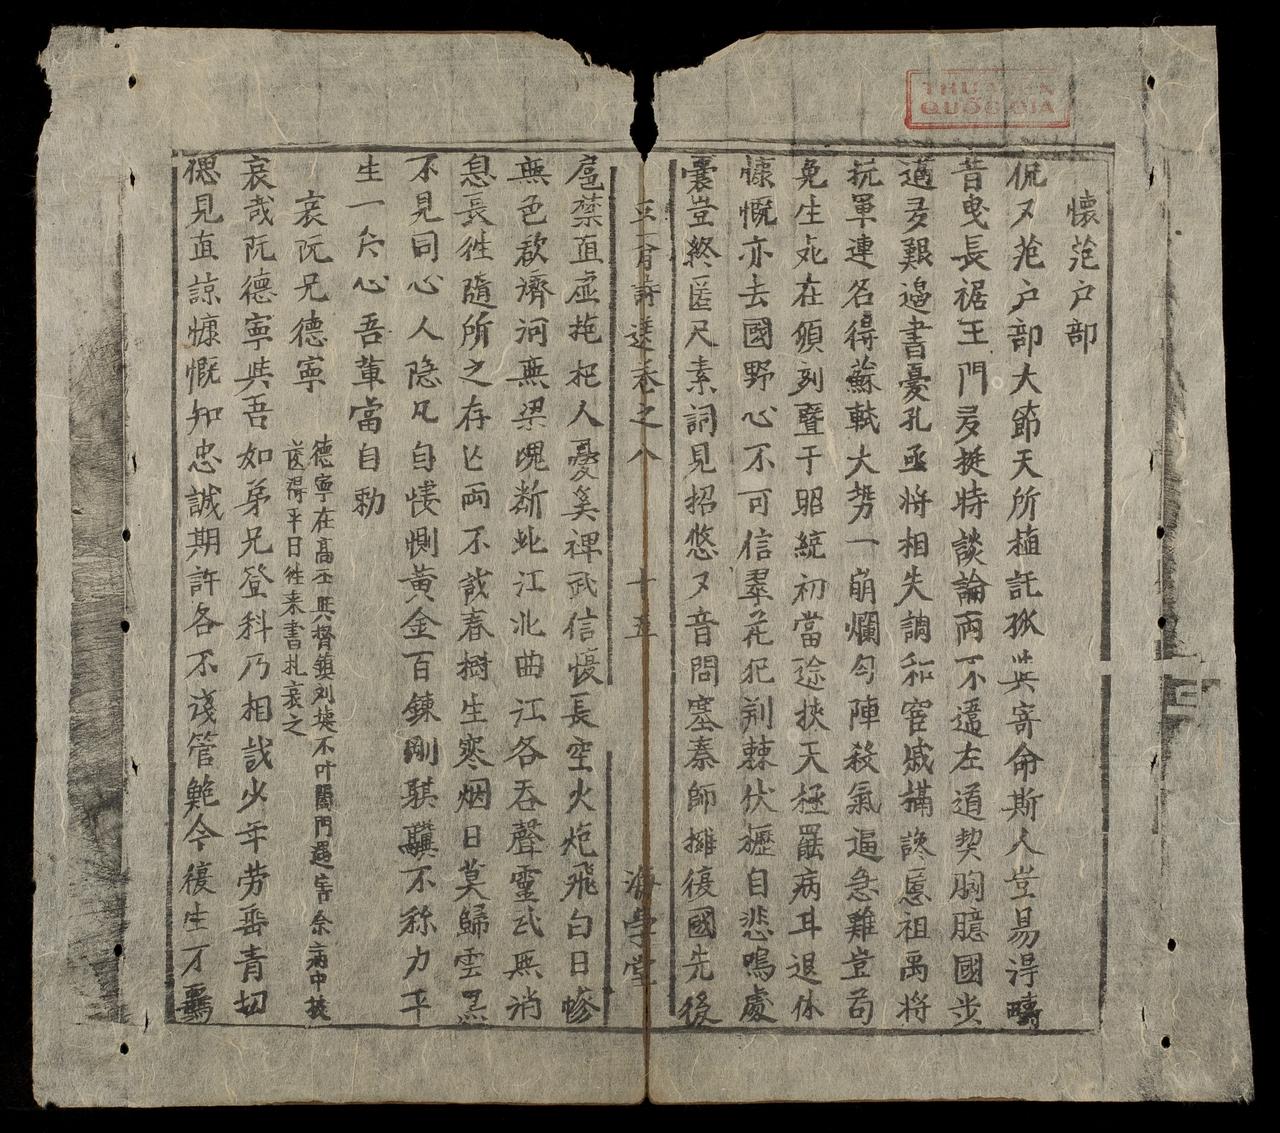 THƯ VIỆN
QUỐC GIA
懷范户部
侃又范户部大節天所植託孤與寄命斯人豈易淂疇
昔曳長裾王門多挺特談論両不遺左道契胸臆國步
遘多艱邉書憂孔亟將相失調和宦戚搆讒慝祖禹將
抗軍連名得蘇軾大势一崩爛勻陣殺氣逼急難豈苟
免生死在頃刻暨于昭統初當途挾天極罷病耳退休
慷慨亦去國野心不可信翠花犯荆棘伏櫪自悲鳴處
囊豈終匿尺素詞見招悠又音問塞秦師擁復國先後
五 詩選卷之八 十五 海學堂
扈蔾直虛拖杞人憂奚裨武信懐長空火炮飛白日慘
無色欲濟河無梁魂断此江北曲江各吞聲靈武無消
息長徃隨所之存亡両不識春樹生寒烟日莫歸雲黑
不見同心人隐几自悽惻黄金百鍊剛騏驥不称力平
生一片心吾輩當自勅
哀阮兄德寧
德寧在高平與督鎮刘 不叶闔門遇害余病中
淂平日徃来書札哀之
哀哉阮德寧與吾如弟兄登科乃相識少年劳垂青切
偲見直諒慷慨知忠誠期許各不淺管鲍今復生不